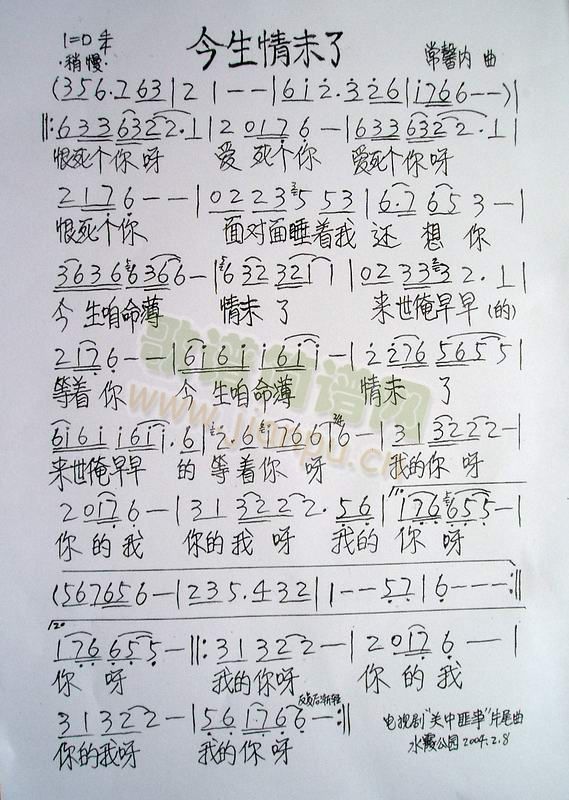 今生情未了
1=D 4/4
·稍慢·
常馨内 曲
(356.763|2 1--|612.326|1766--)|
||:6336322.1|20176-|6336322.1|
恨死个你呀 爱死个你 爱死个你呀
2176--|02235 53|6.7653-|
恨死个你 面对面睡着我 还想你
363666366-|6323211|0233332.1|
今生咱命薄 情未了 来世俺早早(的)
2176--|6161 161 1-|2276 5655|
等着你 今生咱命薄 情未了
6161 161 1.6|2.6 1766 6-|313222-|
来世俺早早 的等着你呀 我的你呀
20176-|313222.56|176655-|
你的我 你的我呀 我的你呀
(567656-|235.432|1--57|6---:||
176655-||:31322-|20176--|
你呀 我的你呀 你的我
31322-|561766-:||
反复后渐轻
你的我呀 我的你呀
电视剧“关中匪事”片尾曲
水霞公园2004.2.8
歌谱简谱网
www.jianpu.cn